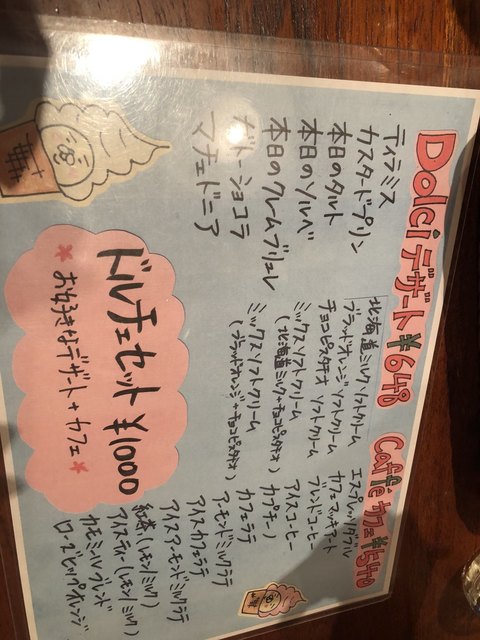 Dolci デザート ¥648
ティラミス
カスタードプリン
本日のタルト
本日のソルベ
本日のクレームブリュレ
ガトーショコラ
マチェドニア
北海道ミルクソフトクリーム
ブラッドオレンジソフトクリーム
チョコピスタチオ ソフトクリーム
ミックスソフトクリーム
(北海道ミルク+チョコピスタチオ)
ミックスソフトクリーム
(ブラッドオレンジ+チョコピスタチオ)
Caffè カフェ ¥540
カフェマッキアート
ブレンドコーヒー
アイスコーヒー
カプチーノ
カフェラテ
アーモンドミルクラテ
アイスカフェラテ
アイスアーモンドミルクラテ
紅茶(レモン/ミルク)
アイスティー(レモン/ミルク)
カモミールブレンド
ローズヒップオレンジ
ドルチェセット ¥1000
*お好きなデザート+カフェ*